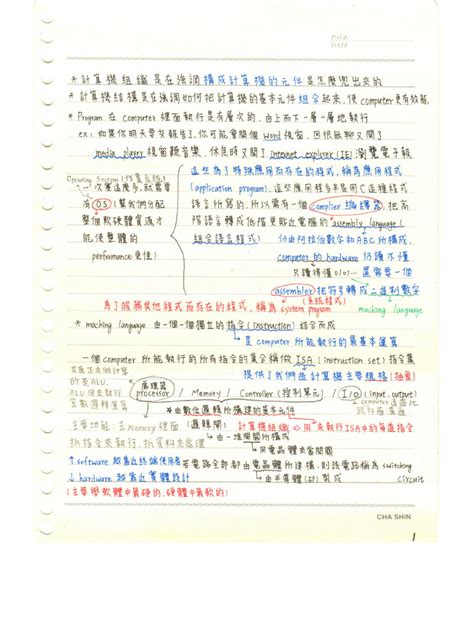 PAGE
DATE
* 計算機組織是在強調構成計算機的元件是怎麼兜出來的
* 計算機結構是在強調如何把計算機的基本元件組合起來，使computer更有效能
* Program 在 computer 裡面執行是有層次的，由上而下一層一層地執行
ex: 如果你明天要交報告了，你可能會開個 Word 視窗，因很無聊又開了
media player 視窗聽音樂，休息時又開了 internet explorer (IE) 瀏覽電子報
Operating System (作業系統)
一次要這麼多，就需要
有 OS (幫我們分配
整個軟硬體資源才
能使整體的
performance 更佳)
這些為了特殊應用而存在的程式，稱為應用程式
(application program)，這些應用程式多半是用C這種程式
語言所寫的，所以需有一個 complier 編譯器，把高
階語言轉成低階更貼近電腦的 assembly language (
組合語言程式) 仍由阿拉伯數字和ABC所構成，
computer 的 hardware 仍讀不懂
只讀得懂 0101… 還需要一個
assembler 把符號轉成二進制數字
為了服務其他程式而存在的程式，稱為 system program (系統程式)
machine language
* machine language 由一個一個獨立的指令 (instruction) 結合而成
是 computer 所能執行的最基本運算
一個 computer 所能執行的所有指令的集合稱做 ISA (instruction set) 指令集
提供了我們這計算機主要規格 (抽象)
其為正在做計算
的是ALU,
ALU用來執行
算數邏輯運算
處理器
processor / Memory / Controller (控制單元) / I/O (input, output)
* 由數位邏輯所構建的基本元件
主要功能：去memory 裡面
抓指令來執行，抓資料來處理
(邏輯閘) 計算機組織 ⇒ 用來執行ISA中的每道指令
由一堆開關所構成
用電晶體來當開關
↑ software 越靠近終端使用者
↓ hardware 越靠近實體設計
若電路全部都由電晶體所建構，則該電路稱為 switching
circuit
由半導體(矽)製成
(主要學軟體中最硬的，硬體中最軟的)
CHA SHIN
1